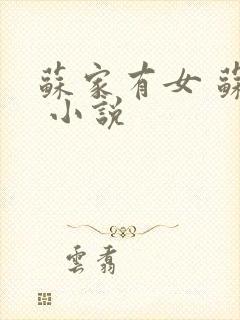 蘇家有女 蘇
小說
雲翥